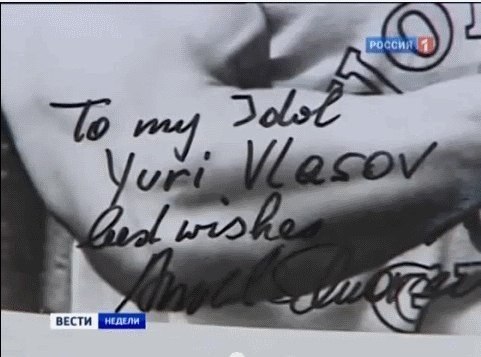 РОССИЯ 1
To my Idol
Yuri Vlasov
best wishes
Arnold
ВЕСТИ НЕДЕЛИ